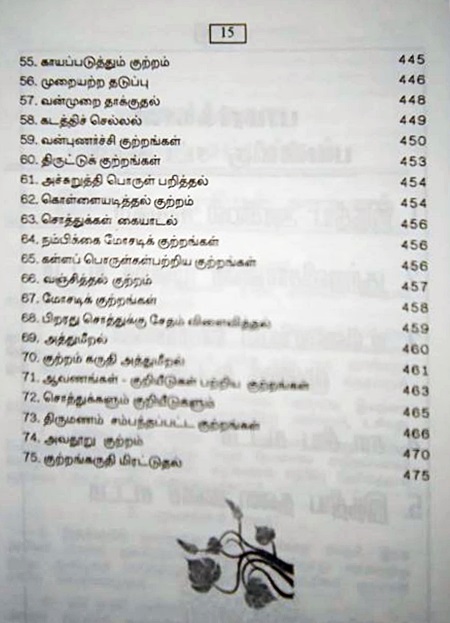 15
55. காயப்படுத்தும் குற்றம் 445
56. முறையற்ற தடுப்பு 446
57. வன்முறை தாக்குதல் 448
58. கடத்திச் செல்லல் 449
59. வன்புணர்ச்சி குற்றங்கள் 450
60. திருட்டுக் குற்றங்கள் 453
61. அச்சுறுத்தி பொருள் பறித்தல் 454
62. கொள்ளையடித்தல் குற்றம் 454
63. சொத்துக்கள் கையாடல் 456
64. நம்பிக்கை மோசடிக் குற்றங்கள் 456
65. கள்ளப் பொருள்கள்பற்றிய குற்றங்கள் 456
66. வஞ்சித்தல் குற்றம் 457
67. மோசடிக் குற்றங்கள் 458
68. பிறரது சொத்துக்கு சேதம் விளைவித்தல் 459
69. அத்துமீறல் 460
70. குற்றம் கருதி அத்துமீறல் 461
71. ஆவணங்கள் - குறியீடுகள் பற்றிய குற்றங்கள் 463
72. சொத்துக்களும் குறியீடுகளும் 465
73. திருமணம் சம்பந்தப்பட்ட குற்றங்கள் 466
74. அவதூறு குற்றம் 470
75. குற்றங்கருதி மிரட்டுதல் 475